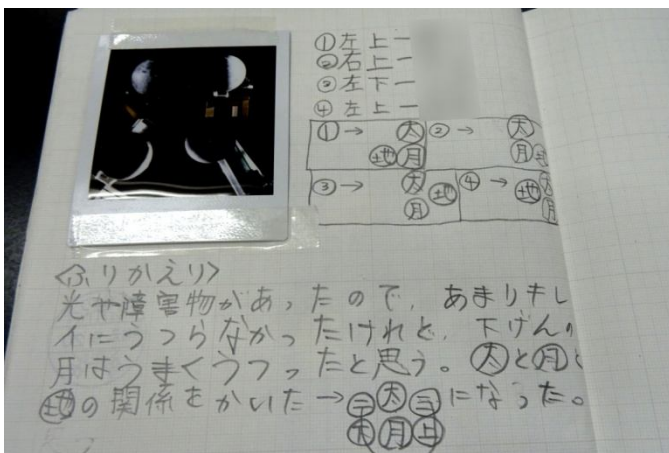 ①左上ー
②右上ー
③左下ー
④左上ー
①→ 太 地 月
②→ 太 月
③→ 太 月 地
④→ 地
<ふりかえり>
光や障害物があったので、あまりキレ
イにうつらなかったけれど、下げんの
月はうまくうつったと思う。太と月と
地の関係をかいた→ 太 になった。
月